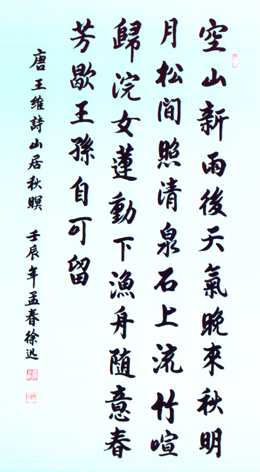 空山新雨後天氣晚來秋明
月松間照清泉石上流竹喧
歸浣女蓮動下漁舟随意春
芳歇王孫自可留
唐王維詩山居秋暝 壬辰年孟春徐